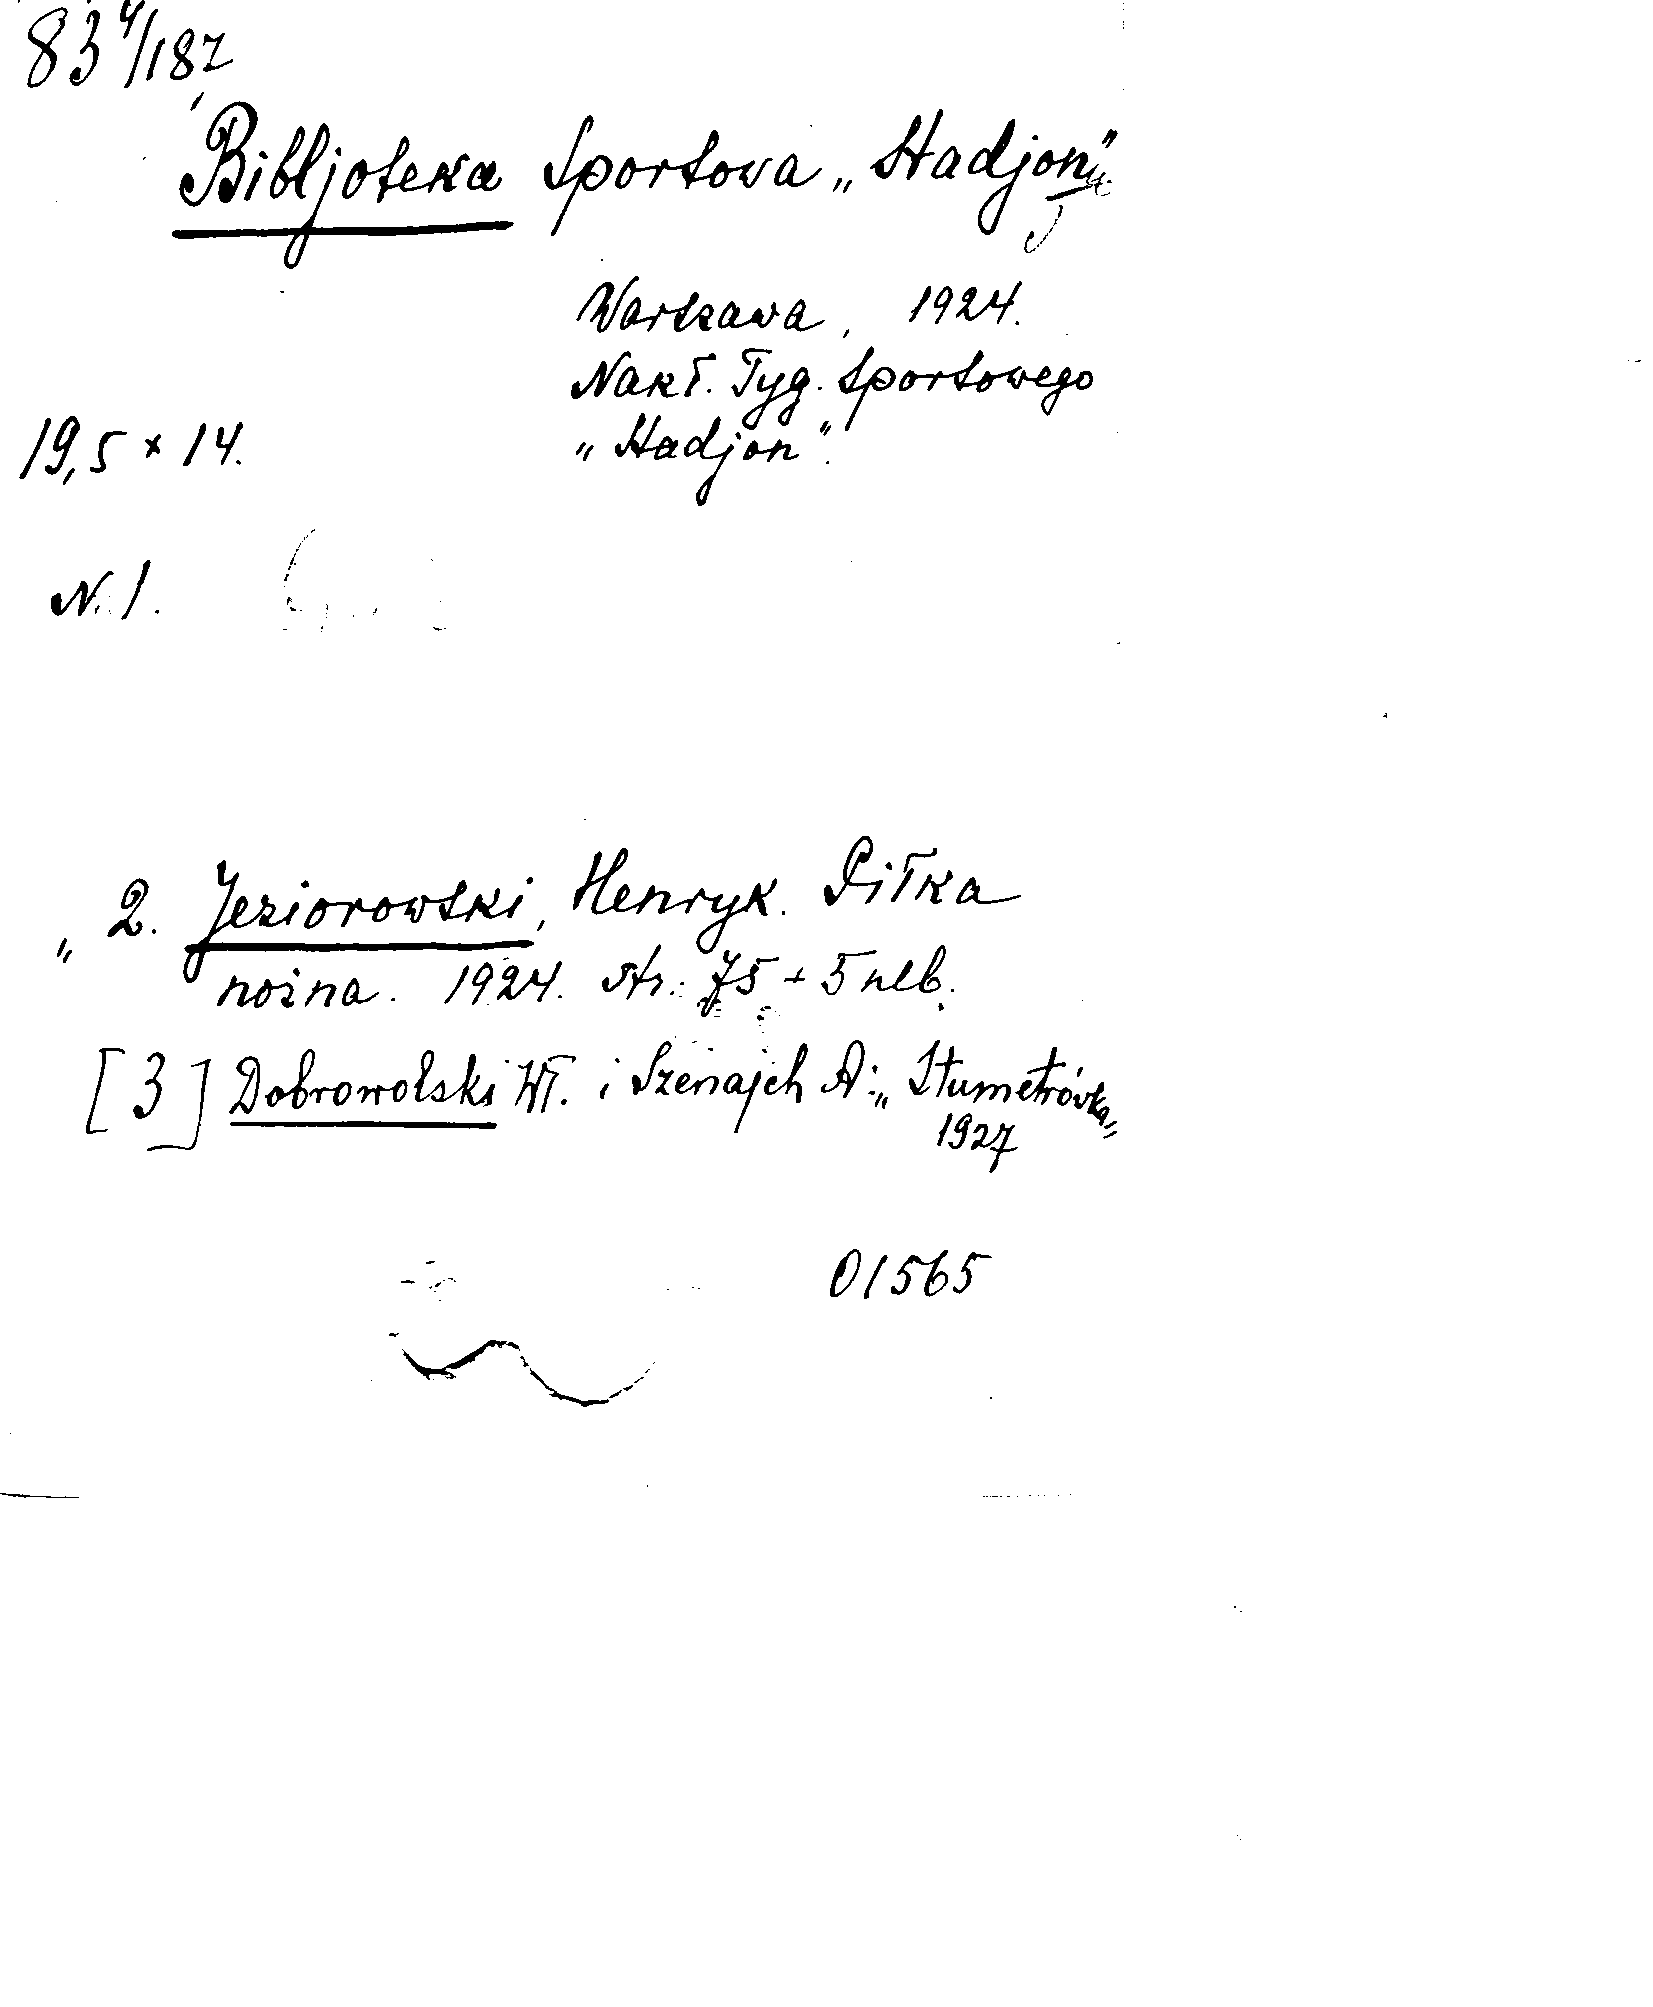 83⁴/187
Bibljoteka Sportowa „Stadjonu"
Warszawa, 1924.
Nakł. Tyg. Sportowego
19,5 x 14. „Stadjon".
N. 1.
„ 2. Jeziorowski, Henryk. Piłka
nożna. 1924. str. 75 + 5 nlb.
[3] Dobrowolski Wł. i Szenajch A: „Stumetrówka"
1927
01565